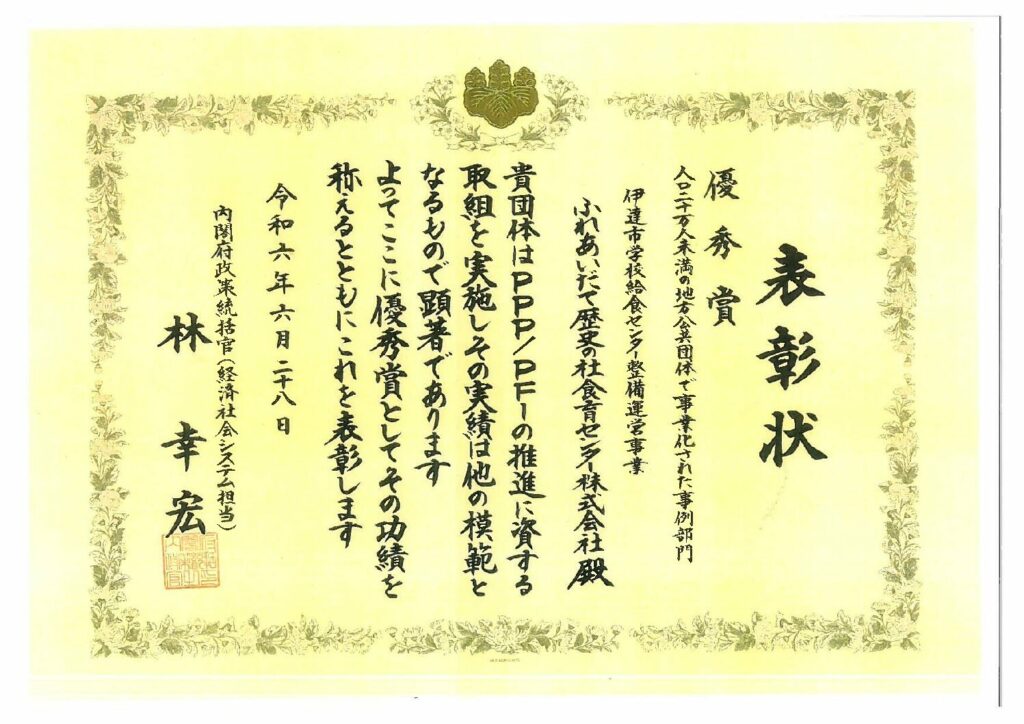 表彰状
優秀賞
人口二十万人未満の地方公共団体で事業化された事例部門
伊達市学校給食センター整備運営事業
ふれあいだて歴史の杜食育センター株式会社殿
貴団体はPPP/PFIの推進に資する
取組を実施しその実績は他の模範と
なるもので顕著であります
よってここに優秀賞としてその功績を
称えるとともにこれを表彰します
令和六年六月二十八日
内閣府政策統括官(経済社会システム担当)
林幸宏